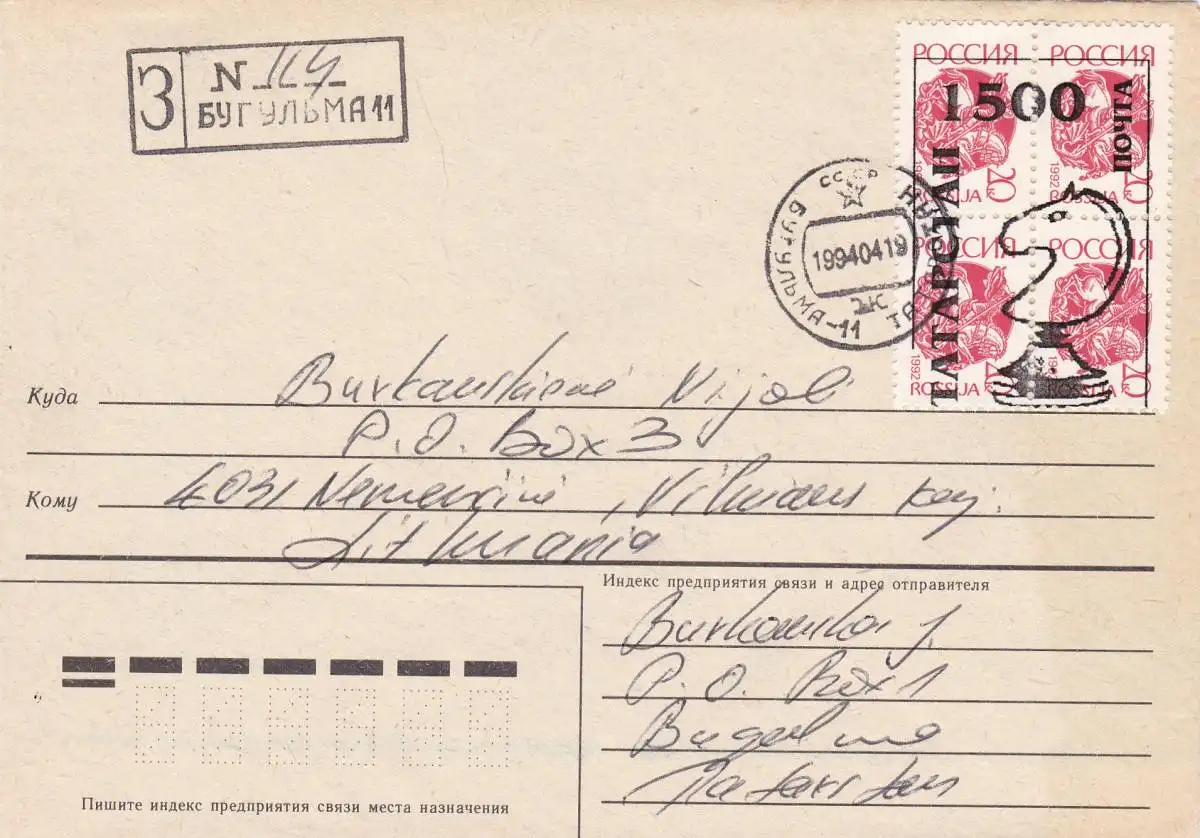 З N 114
БУГУЛЬМА 11
РОССИЯ РОССИЯ
1500
ПОЧТА
ТАТАРСТАН
1992 20к
ROSSIJA ROSSIJA
РОССИЯ РОССИЯ
1992 20к
ROSSIJA ROSSIJA
СССР
БУГУЛЬМА-11
19940419
2К
Куда Burkauskienė Nijolė
P.O. Box 3
Кому 4031 Nemenčinė, Vilniaus raj.
Lithuania
Индекс предприятия связи и адрес отправителя
Burkauskas J.
P.O. Box 1
Bugulma
Tatarstan
Пишите индекс предприятия связи места назначения